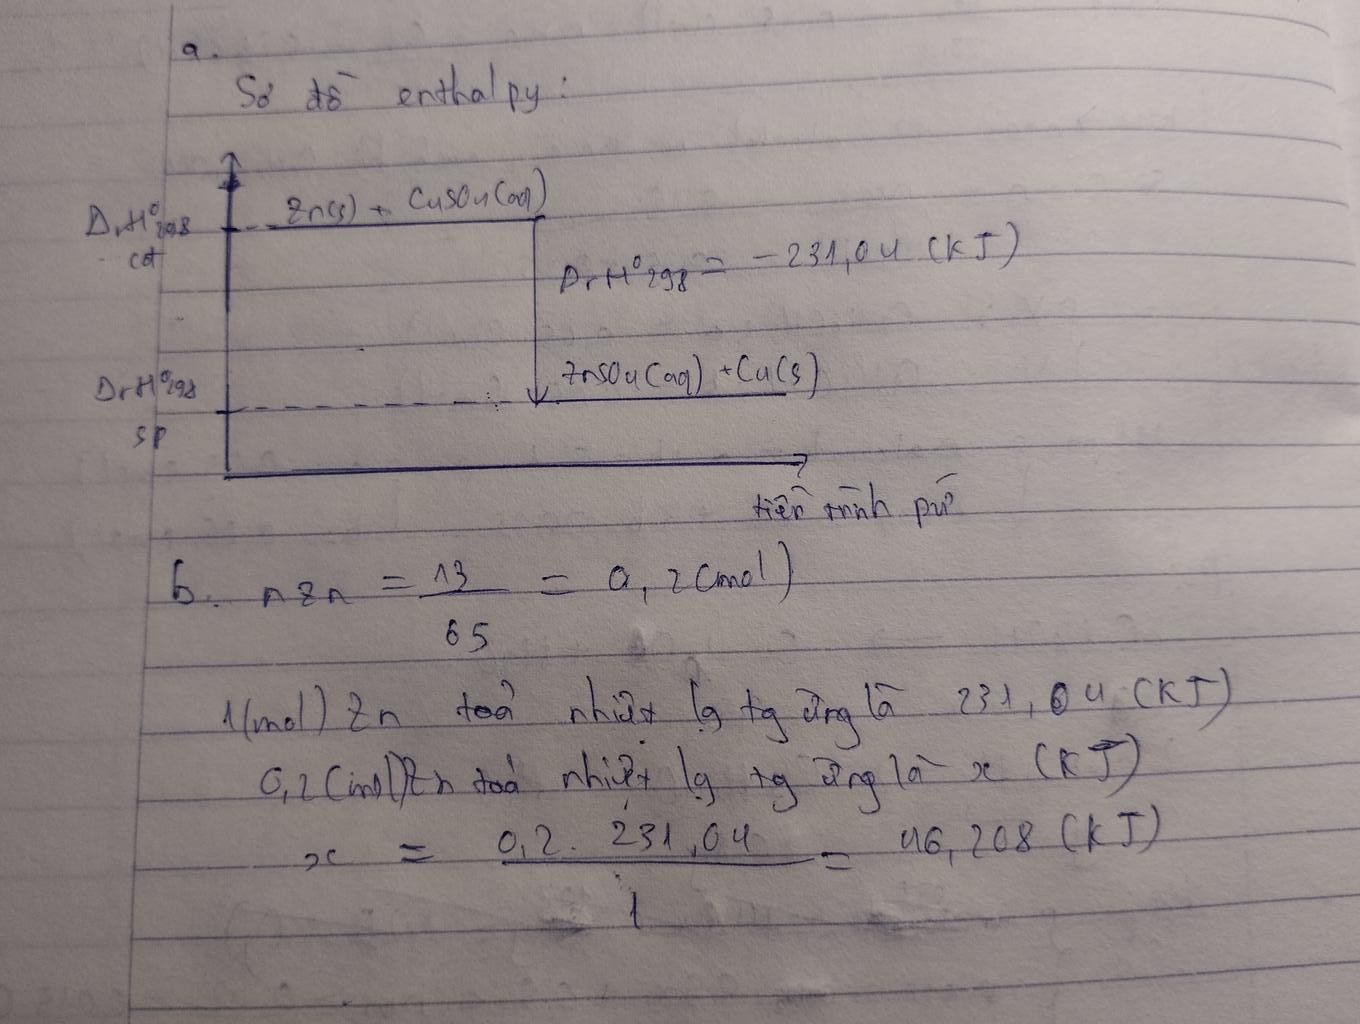 a.
Sơ đồ enthalpy:
Zn(s) + CuSO4(aq)
ΔrH°298
cđ
ΔrH°298 = -231,04 (KJ)
ZnSO4(aq) + Cu(s)
ΔrH°298
sp
tiến trình pứ
b. nZn = 13/65 = 0,2(mol)
1(mol) Zn toả nhiệt lg tg ứng là 231,04 (KJ)
0,2(mol)Zn toả nhiệt lg tg ứng là x (KJ)
x = 0,2.231,04/1 = 46,208 (KJ)